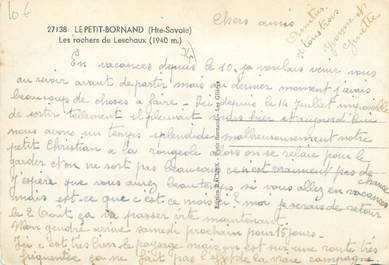 10€
27138 LE PETIT-BORNAND (Hte-Savoie)
Les rochers de Leschaux (1940 m.)
74
Chers amis
Amitiés
à tous trois
Yvonne et
Ginette
En vacances depuis le 10, je voulais venir vous
au revoir avant de partir mais au dernier moment j'avais
beaucoup de choses a faire. Ici depuis le 14 Juillet impossible
de sortir tellement il pleuvait mais hier et aujourd'hui
nous avons un temps splendide malheureusement notre
petit Christian a la rougeole alors on se relaie pour le
garder et on ne sort pas beaucoup ce n'est vraiment pas de chance
J'espère que vous aurez beau temps si vous allez en vacances
mais est-ce que c'est ce mois-ci? moi je serais de retour
le 2 Août ça va passer vite maintenant
Mon gendre arrive samedi prochain pour 15 jours.
Ici c'est très bien le paysage mais on est sur une route très
fréquentée ça ne fait pas l'effet de la vraie campagne